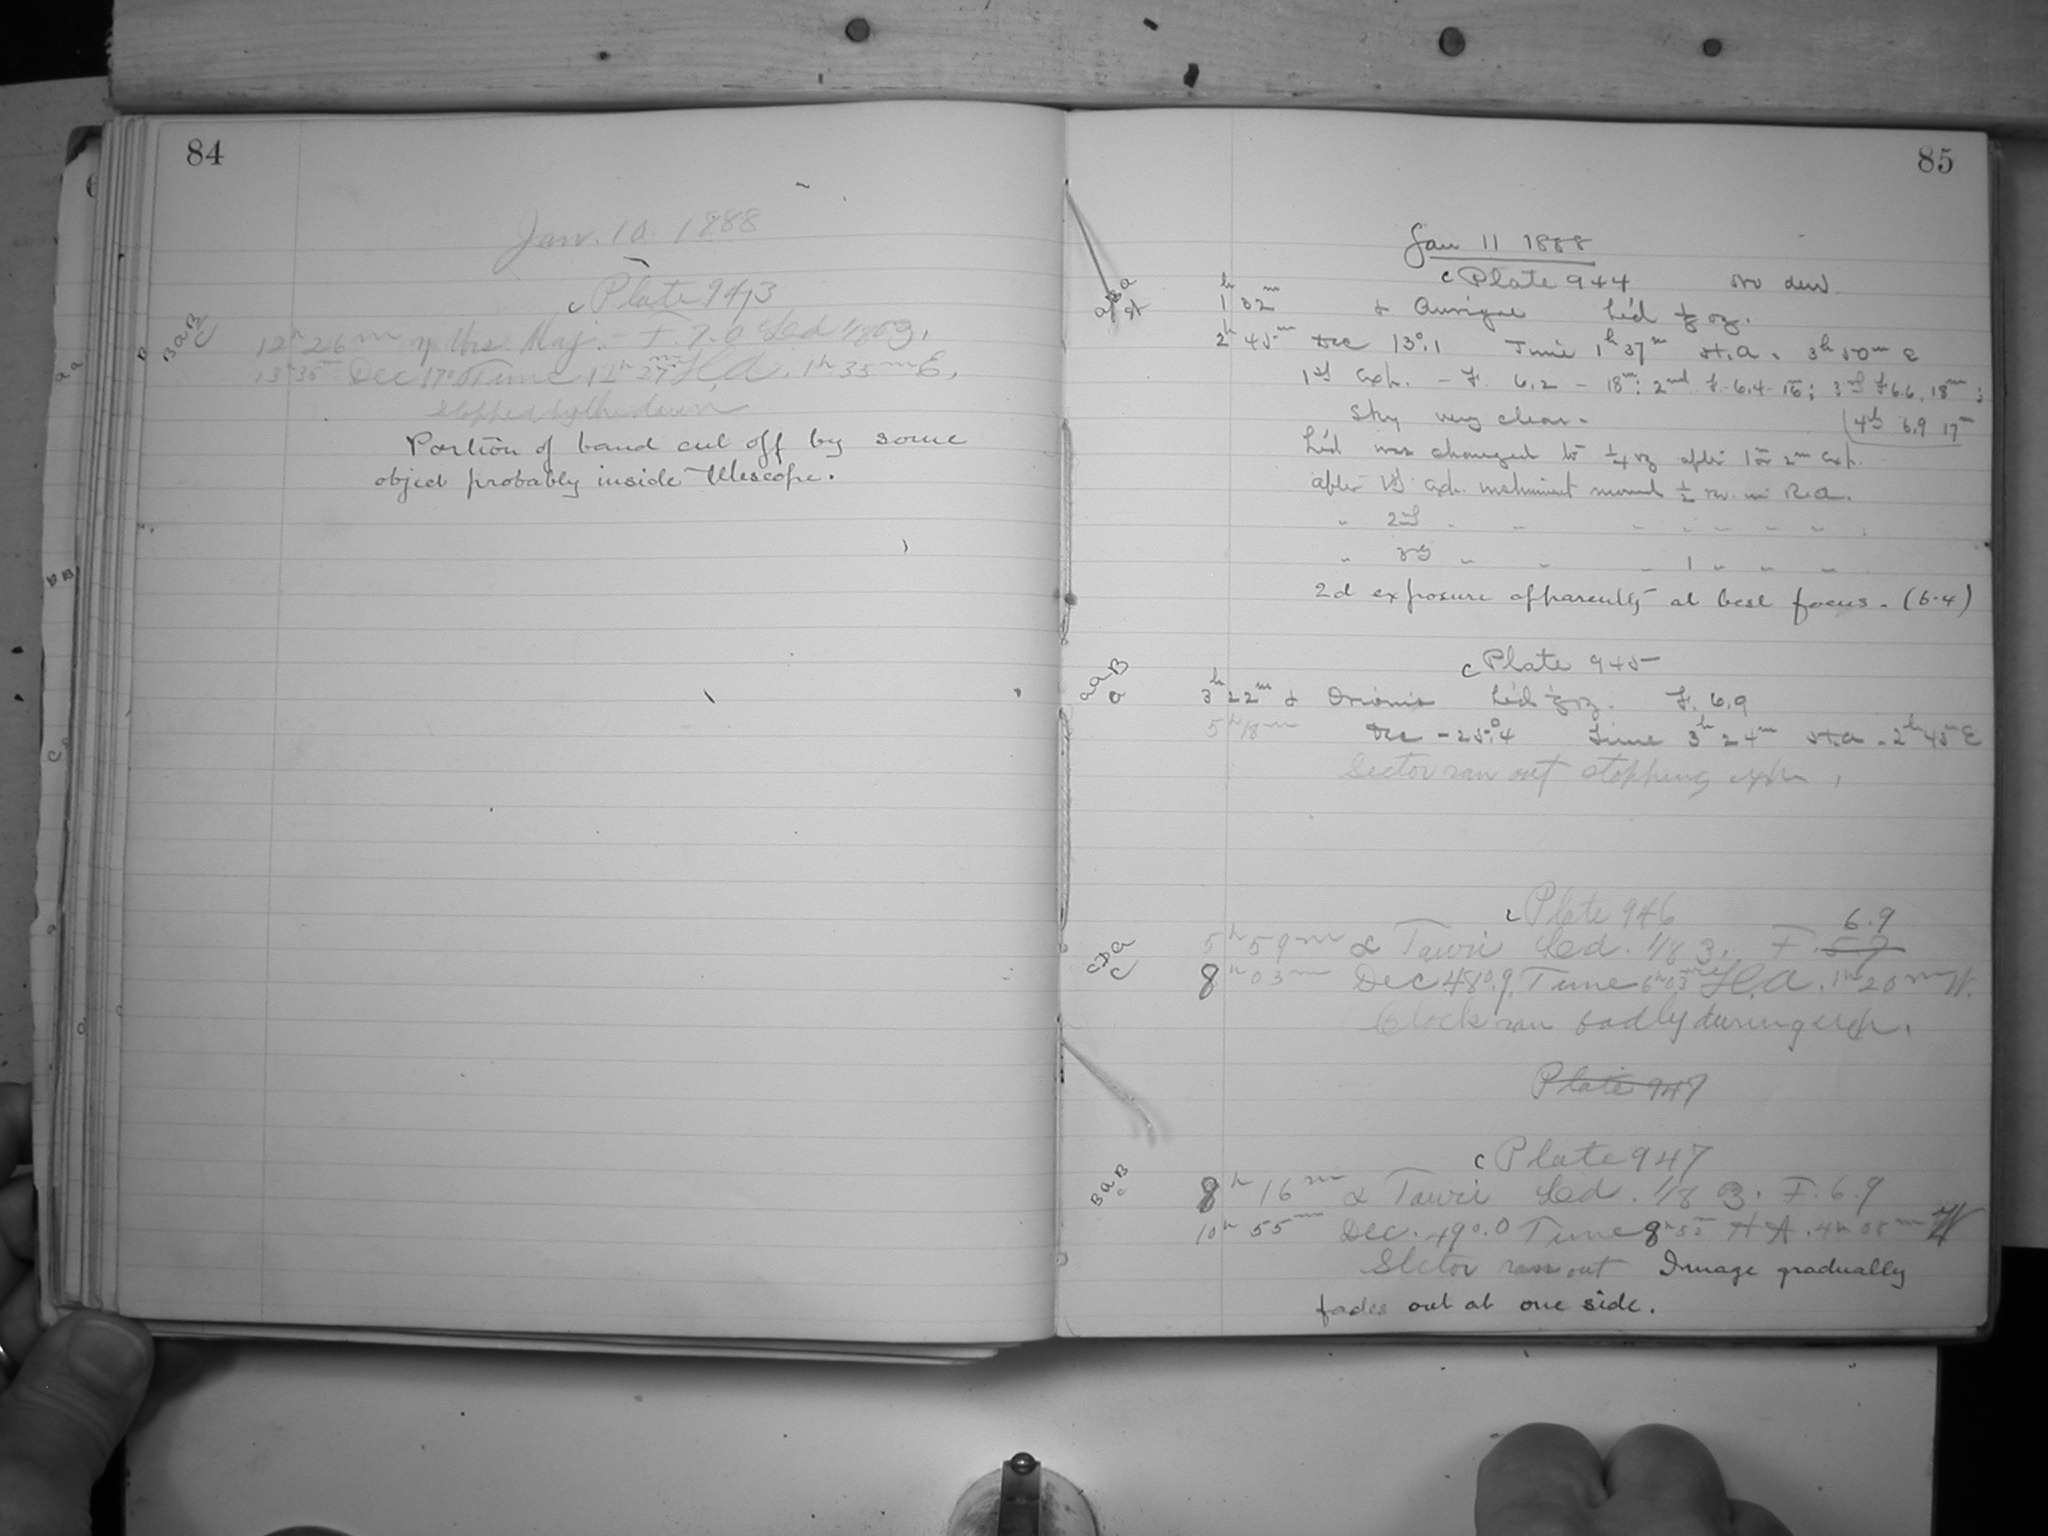 84
Jan. 10. 1888
c Plate 943
B a B
C
12h 26m η Urs. Maj. F. 7.0 Led 1/8 oz.
13h 35m Dec 17° Time 12h 27m H.A. 1h 35m E.
Stopped by the dawn
Portion of band cut off by some
object probably inside telescope.
85
Jan 11 1888
c Plate 944 No dew
1h 32m α Aurigae Led 1/8 oz.
2h 45m Dec 13°.1 Time 1h 37m H.A. 3h 50m E
1st Exp. - F. 6.2 - 18m; 2nd F. 6.4 - 16m; 3rd F 6.6, 18m;
Sky very clear. 4th 6.9 17m
Led was changed to 1/4 oz after 1 or 2m exp.
after 1st exp. instrument moved 1/2 rev. in R.A.
" 2nd " " " " " " "
" 3rd " " " 1 " " "
2d exposure apparently at best focus. (6.4)
c Plate 945
a a B
a
3h 22m α Orionis Led 1/8 oz. F. 6.9
5h 18m Dec -25°.4 Time 3h 24m H.A. 2h 45m E
Sector ran out stopping exp.
c Plate 946
6.9
C D a
C
5h 59m α Tauri Led. 1/8 oz. F.
8h 03m Dec 48°.9 Time 6h 03m H.A. 1h 20m W.
Clock ran badly during exp.
Plate 947
c Plate 947
B a B
c
8h 16m α Tauri Led. 1/8 oz. F. 6.9
10h 55m Dec. 49°.0 Time 8h 52m H A. 4h 08m W
Sector ran out Image gradually
fades out at one side.